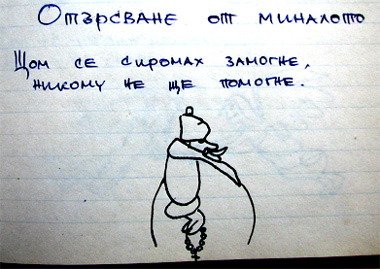 Отърсване от миналото
Щом се сиромах замогне,
никому не ще помогне.